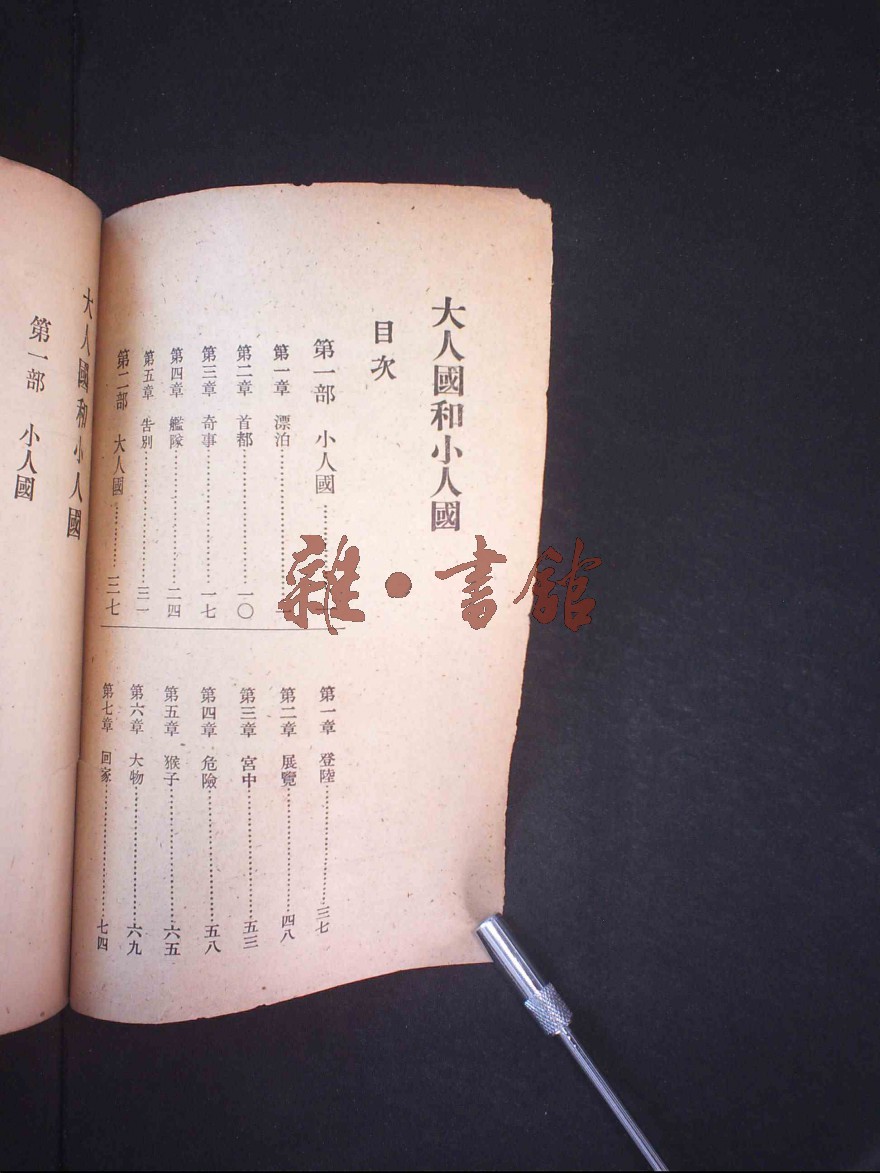 大人國和小人國
目次
第一部 小人國
第一章 漂泊
第二章 首都 一〇
第三章 奇事 一七
第四章 艦隊 二四
第五章 告別 三一
第二部 大人國 三七
第一章 登陸 三七
第二章 展覽 四八
第三章 宮中 五三
第四章 危險 五八
第五章 猴子 六五
第六章 大物 六九
第七章 回家 七四
大人國和小人國
第一部 小人國
雜·書館